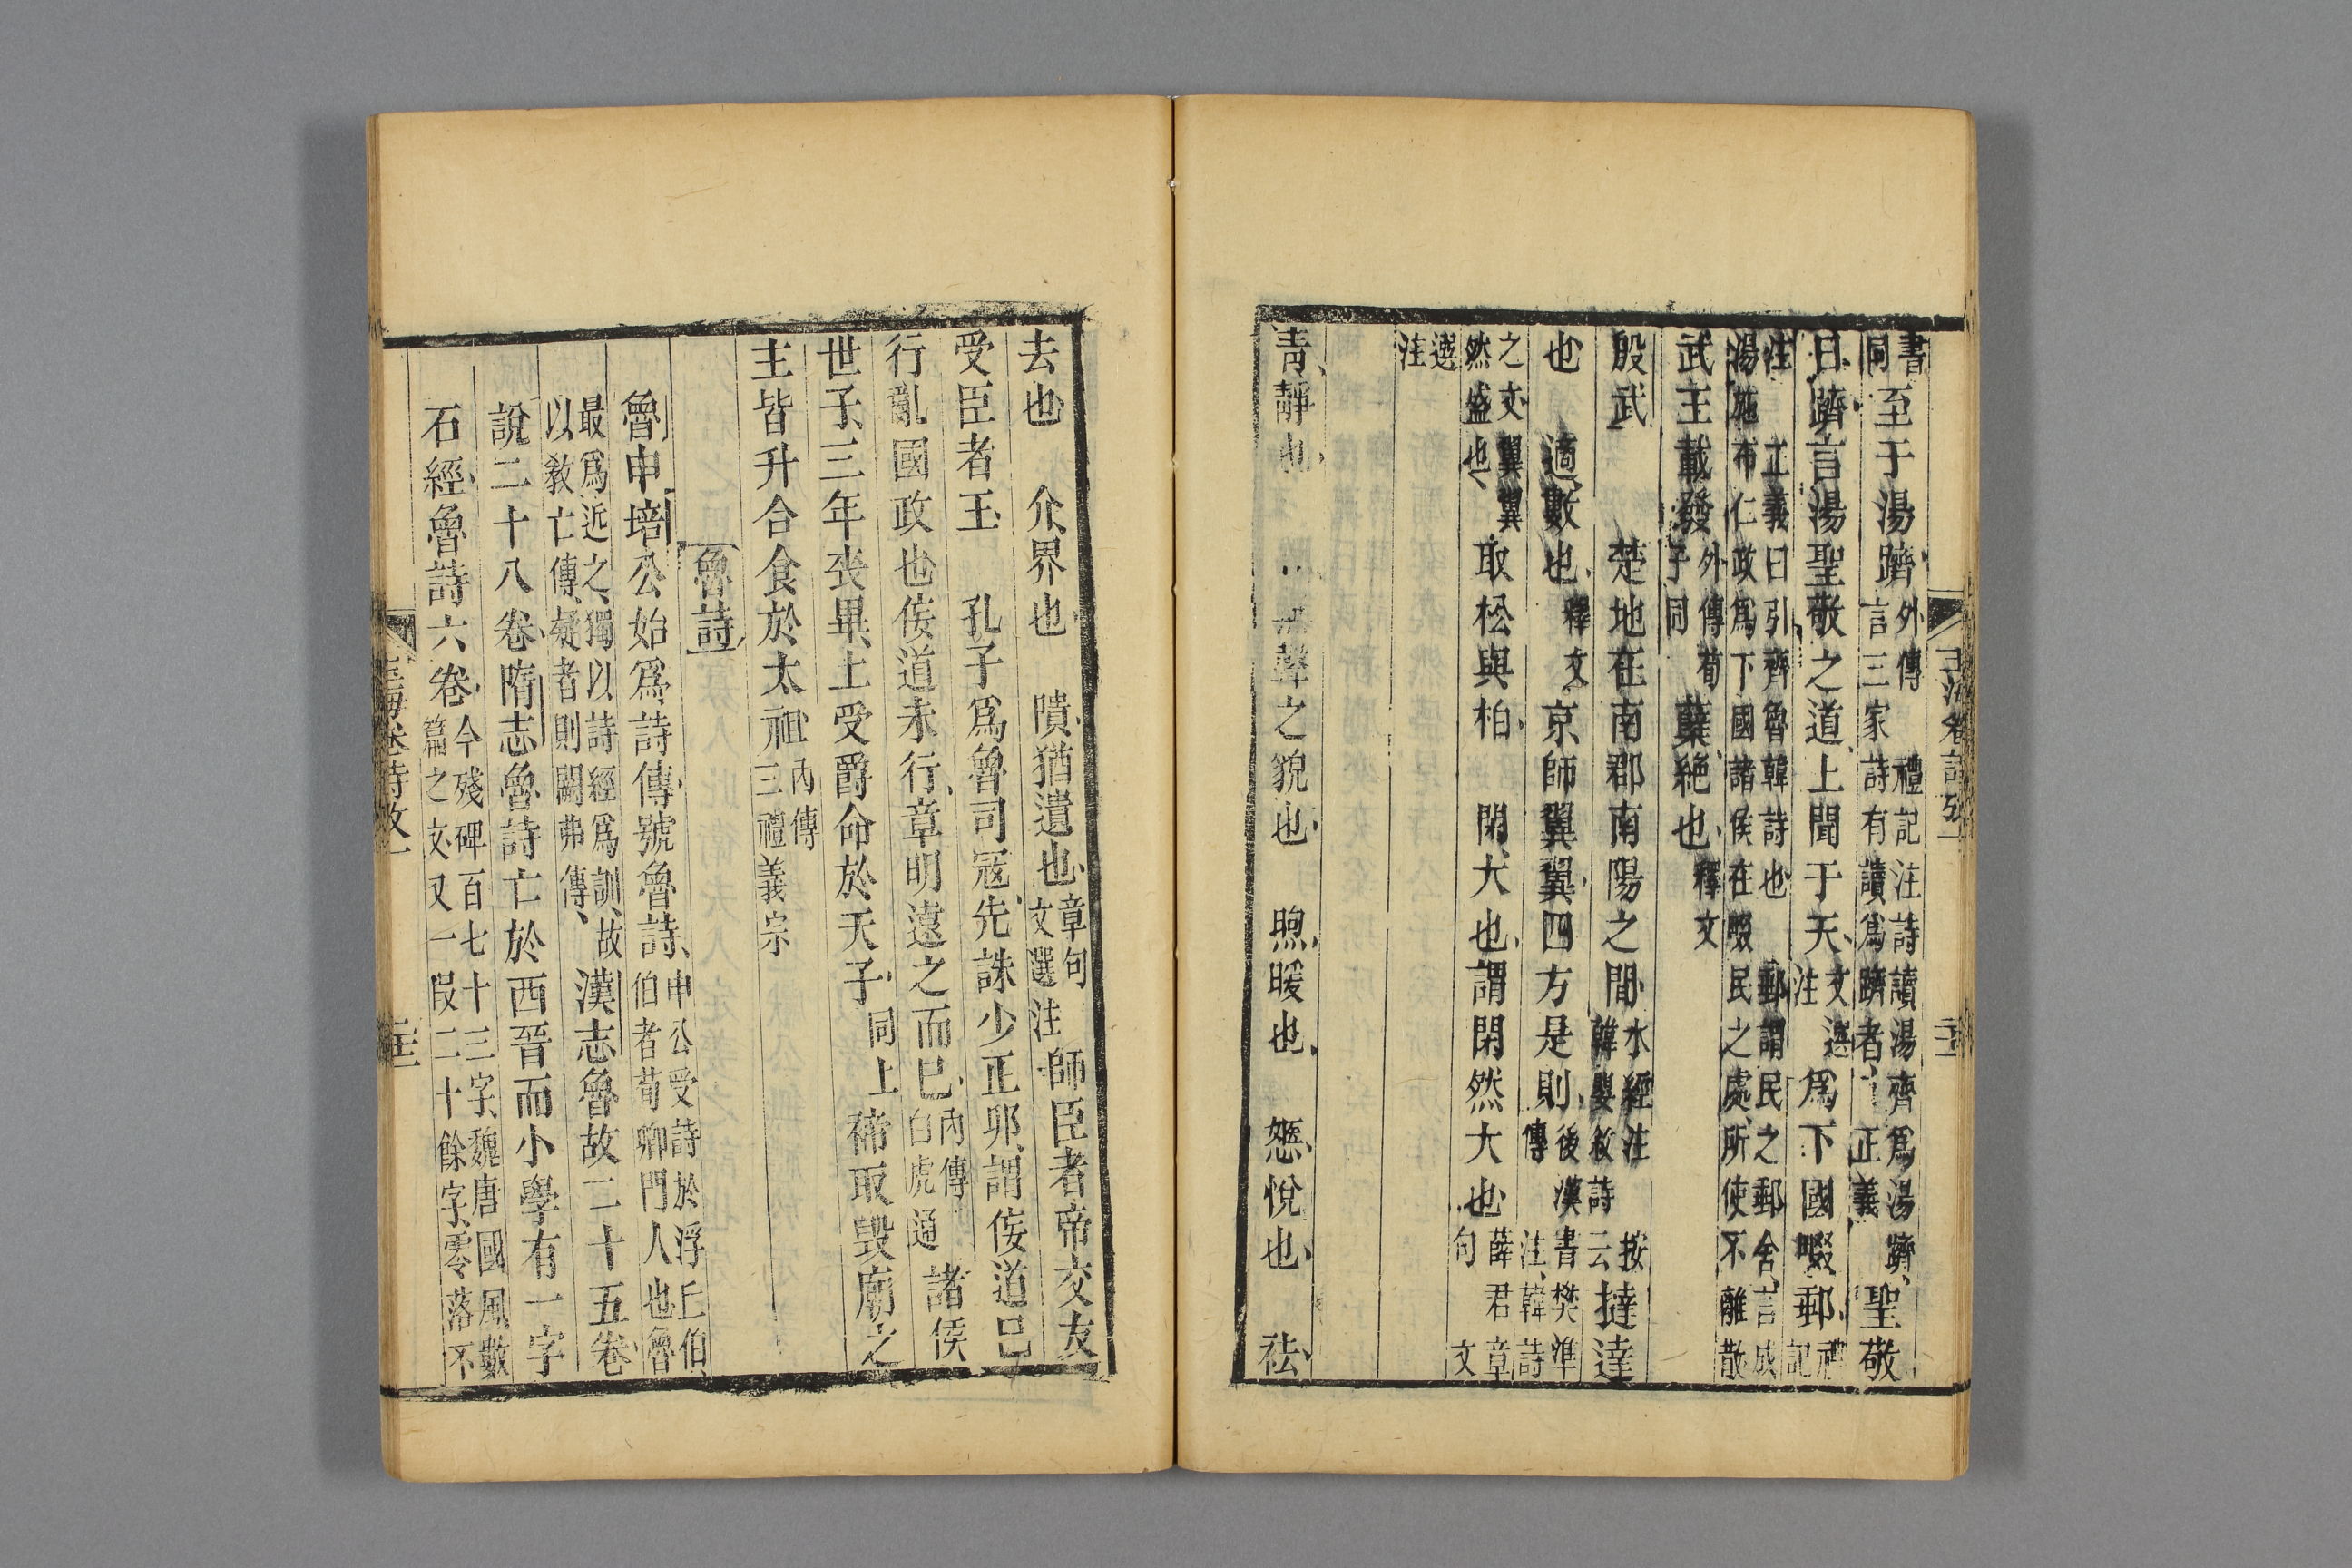 書同至于湯躋外傳言三家詩有讀爲躋者禮記注詩讀湯齊爲湯躋正義聖敬
日躋言湯聖敬之道上聞于天文選注爲下國畷郵禮記
注湯施布仁政爲下國諸侯在畷民之處所使不離散正義曰引齊魯韓詩也郵謂民之郵舍言成
武王載發外傳荀子同蘖絶也釋文
殷武 楚地在南郡南陽之間水經注韓嬰敘詩云按撻達
也 適數也釋文京師翼翼四方是則後漢書樊準傳注韓詩
之文翼翼然盛也 取松與柏 閑大也謂閑然大也薛君章句文
選注
青靜也 聲之貌也 煦暖也 愿悅也 袪
玉海卷詩攷一
去也 介界也 隤猶遺也章句文選注師臣者帝交友
受臣者王 孔子爲魯司寇先誅少正卯謂佞道已
行亂國政也佞道未行章明遠之而已內傳白虎通諸侯
世子三年喪畢上受爵命於天子同上禘取毀廟之
主皆升合食於太祖內傳三禮義宗
魯詩
魯申培公始爲詩傳號魯詩申公受詩於浮丘伯伯者荀卿門人也魯
最爲近之獨以詩經爲訓故以敎亡傳疑者則闕弗傳漢志魯故二十五卷
說二十八卷隋志魯詩亡於西晉而小學有一字
石經魯詩六卷今殘碑百七十三字魏唐國風數篇之文又一叚二十餘字零落不
玉海卷詩攷一